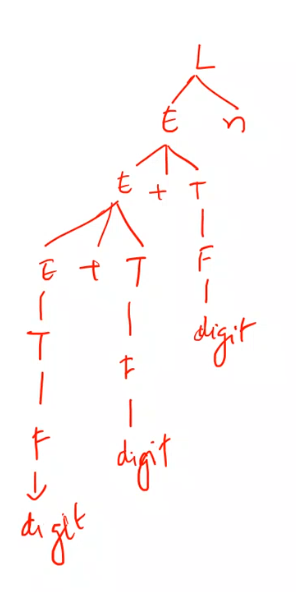 L
E n
E + T
E + T F
T F digit
F digit
digit